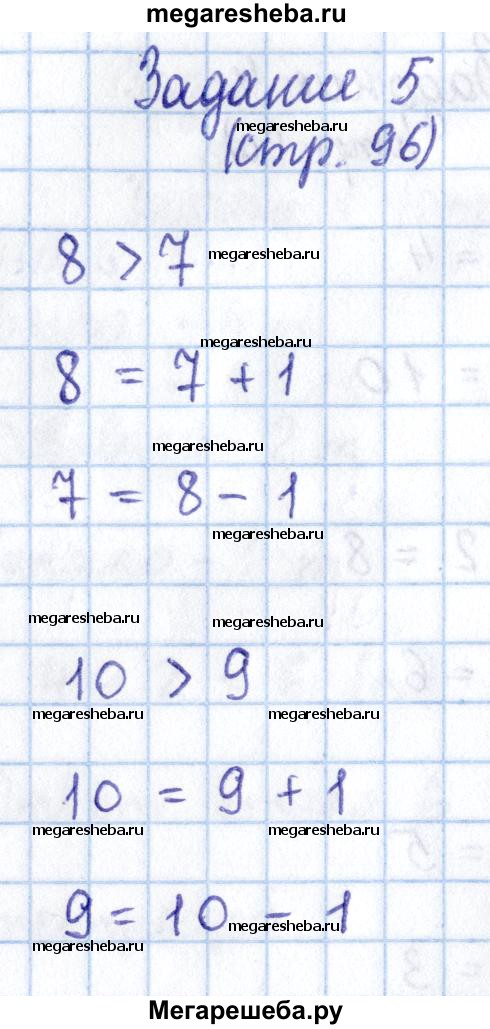 megaresheba.ru
Задание 5
megaresheba.ru
(стр. 96)
8 > 7 megaresheba.ru
megaresheba.ru
8 = 7 + 1
megaresheba.ru
7 = 8 - 1
megaresheba.ru
megaresheba.ru megaresheba.ru
10 > 9
megaresheba.ru megaresheba.ru
10 = 9 + 1
megaresheba.ru megaresheba.ru
9 = 10 - 1
megaresheba.ru
megaresheba.ru
Мегарешеба.ру